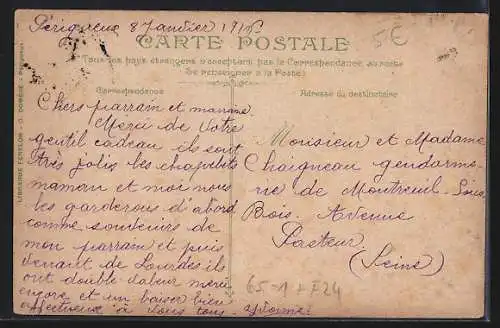 Périgueux 8 Janvier
5€
CARTE POSTALE
Tous les pays étrangers n'acceptent pas la Correspondance au recto
(Se renseigner à la Poste)
Correspondance
Adresse du destinataire
LIBRAIRIE FÉNELON - O. DOMÈGE -
Chers parrain et marraine
Merci de votre
gentil cadeau ils sont
très jolis les chapelets
maman et moi nous
les garderous d'abord
comme souvenirs de
mon parrain et puis
venant de Lourdes ils
ont double valeur merci
encore et un baiser bien
affectueux à vous tous. Yvonne
Monsieur et Madame
Chaigneau gendarme-
rie de Montreuil-sous
Bois. Avenue
Pasteur
(Seine)